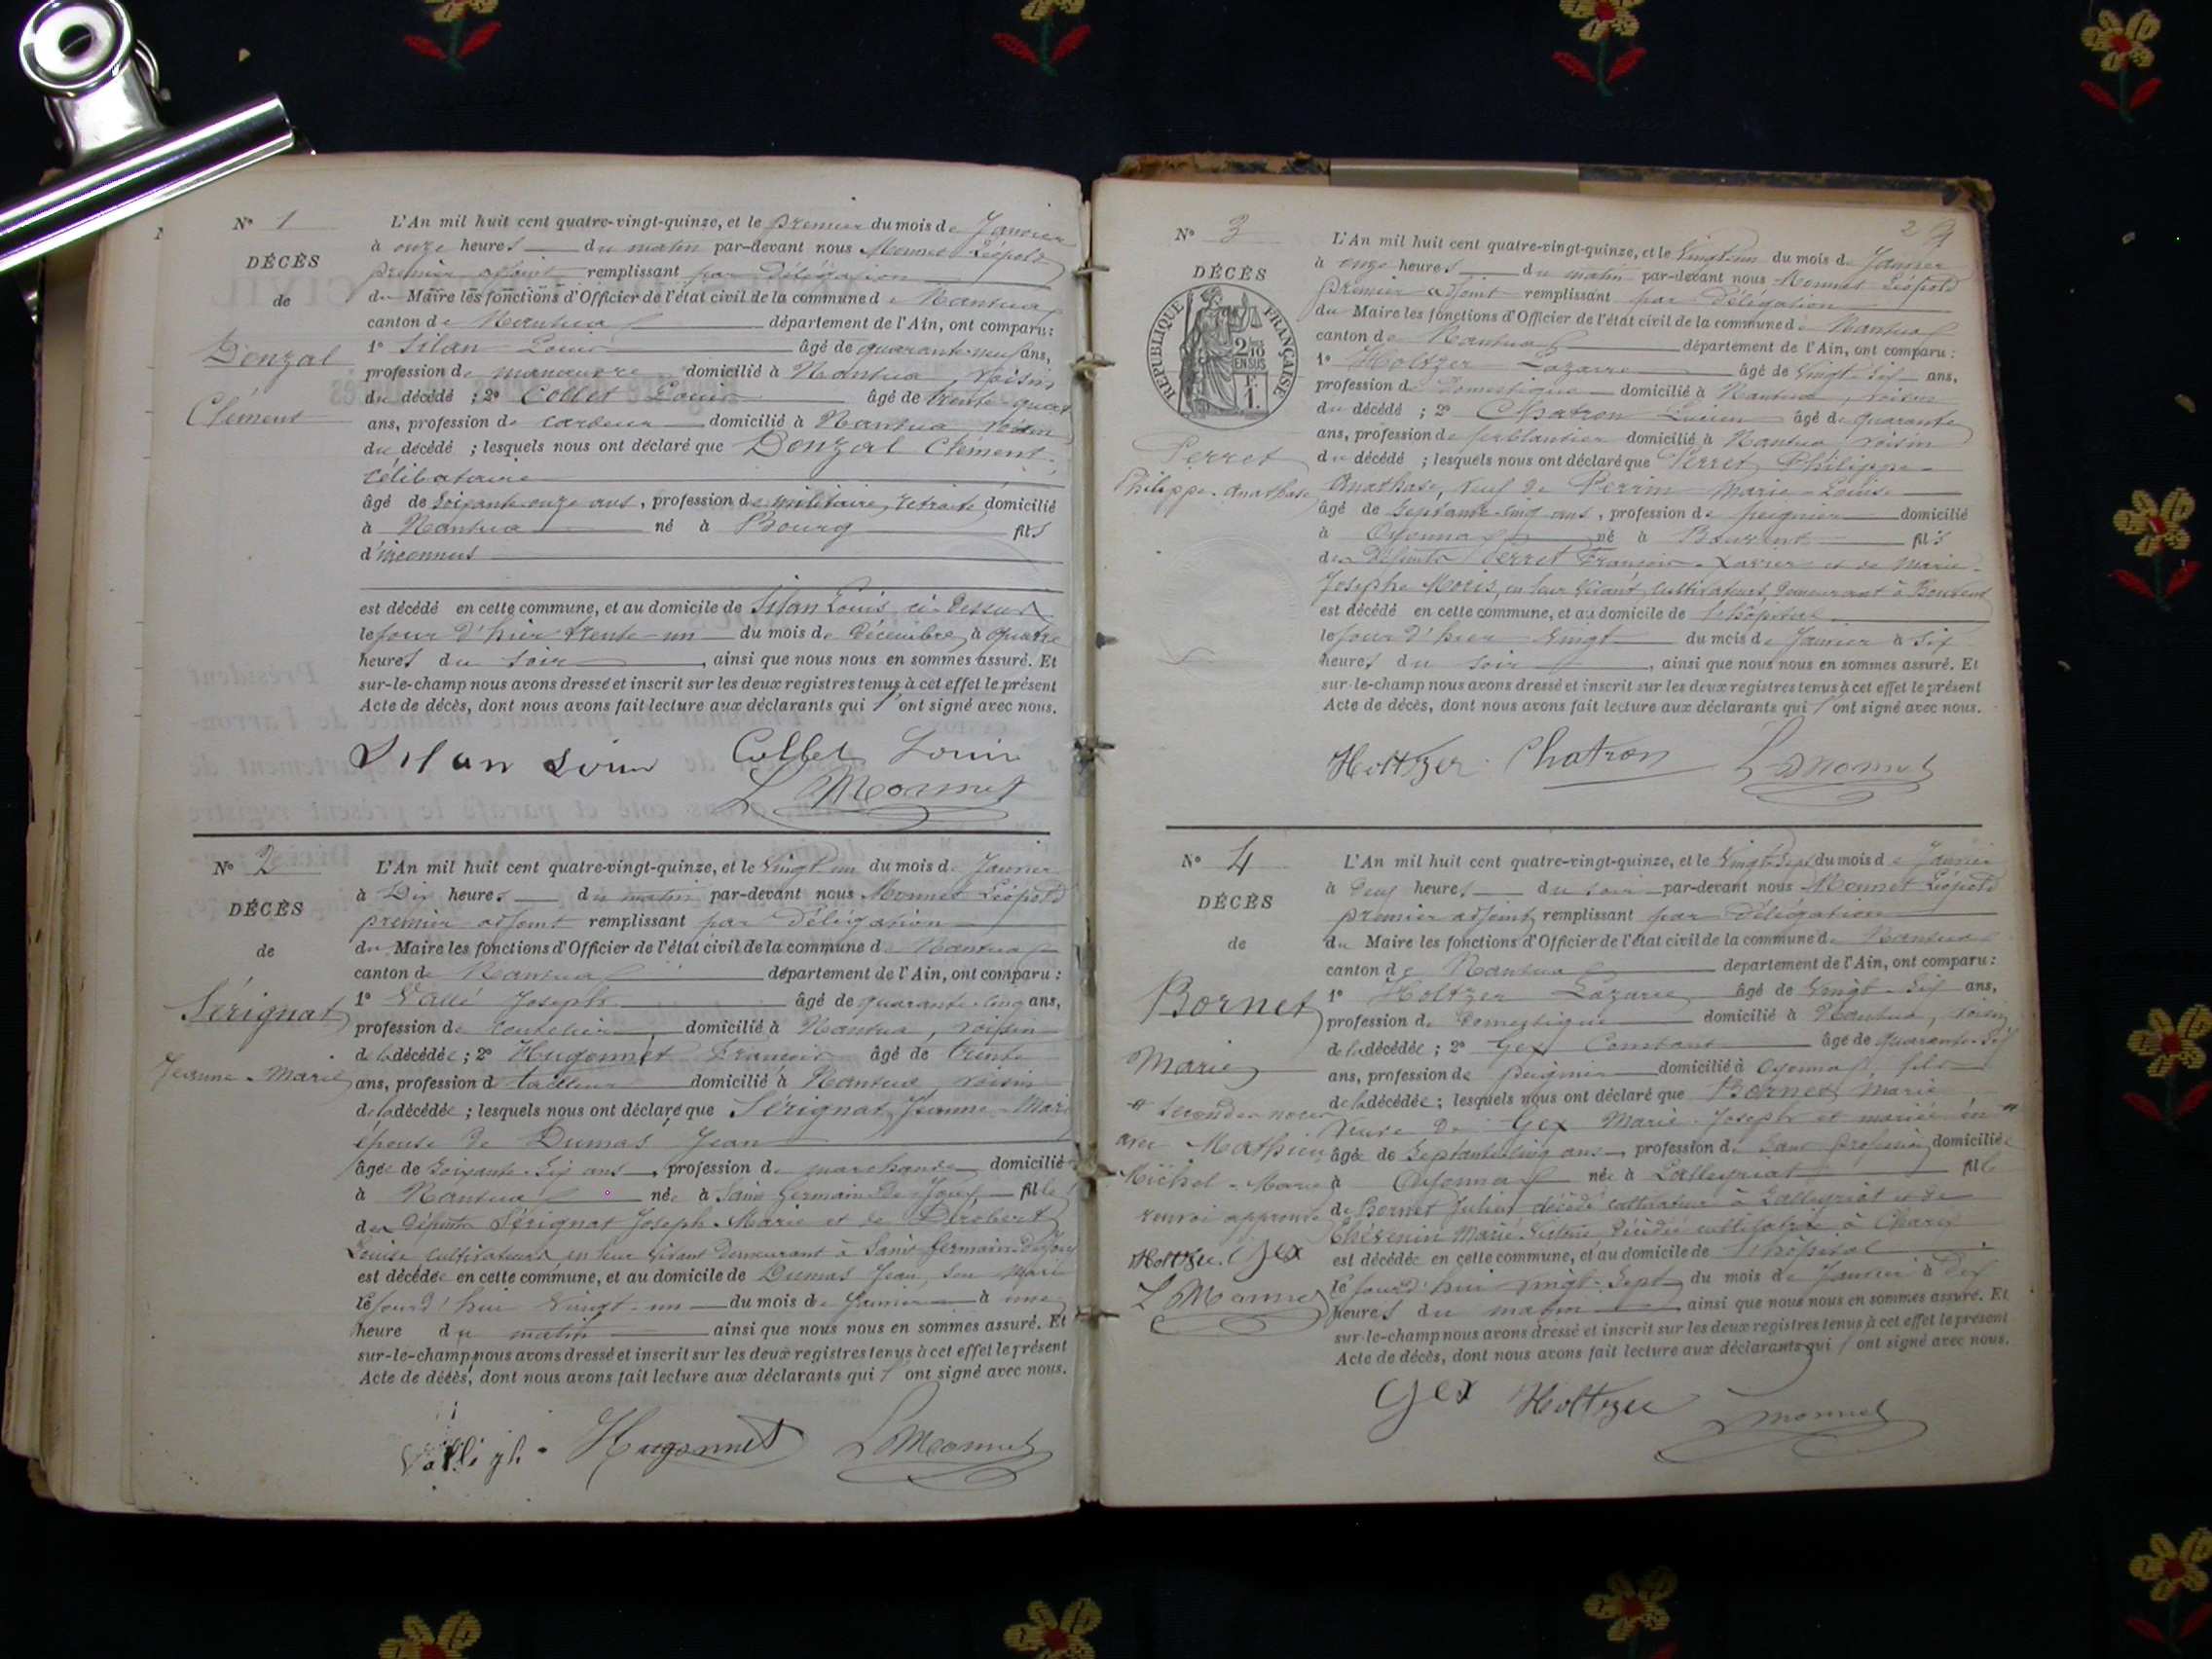 N° 1
DÉCÈS
de
Donzal
Clément
L'An mil huit cent quatre-vingt-quinze, et le premier du mois de Janvier
à onze heures du matin par-devant nous Monnet Léopold
premier adjoint remplissant par Délégation
du Maire les fonctions d'Officier de l'état civil de la commune de Nantua
canton de Nantua département de l'Ain, ont comparu :
1° Silan Louis âgé de quarante-neuf ans,
profession de manœuvre domicilié à Nantua, voisin
du décédé ; 2° Collet Louis âgé de trente-quatre
ans, profession de cardeur domicilié à Nantua voisin
du décédé ; lesquels nous ont déclaré que Donzal Clément
célibataire
âgé de soixante onze ans, profession de militaire retraité domicilié
à Nantua né à Bourg fils
d'inconnus
est décédé en cette commune, et au domicile de Silan Louis, ci-dessus
le jour d'hier trente-un du mois de Décembre, à quatre
heures du soir, ainsi que nous nous en sommes assuré. Et
sur-le-champ nous avons dressé et inscrit sur les deux registres tenus à cet effet le présent
Acte de décès, dont nous avons fait lecture aux déclarants qui ont signé avec nous.
Silan Louis Collet Louis
L Monnet
N° 2
DÉCÈS
de
Sérignat
Jeanne-Marie
L'An mil huit cent quatre-vingt-quinze, et le vingt un du mois de Janvier
à Dix heures du matin par-devant nous Monnet Léopold
premier adjoint remplissant par Délégation
du Maire les fonctions d'Officier de l'état civil de la commune de Nantua
canton de Nantua département de l'Ain, ont comparu :
1° Vallé Joseph âgé de quarante-cinq ans,
profession de domicilié à Nantua, voisin
de la décédée ; 2° Hugonnet François âgé de trente
ans, profession de tailleur domicilié à Nantua, voisin
de la décédée ; lesquels nous ont déclaré que Sérignat Jeanne-Marie
épouse de Dumas Jean
âgée de soixante-six ans, profession de marchande domiciliée
à Nantua née à Saint Germain de Joux fille
des défunts Sérignat Joseph-Marie et de Dérobert
Louise cultivateurs en leur vivant demeurant à Saint Germain de Joux
est décédée en cette commune, et au domicile de Dumas Jean, son mari
le jourd'hui vingt-un du mois de Janvier à une
heure du matin ainsi que nous nous en sommes assuré. Et
sur-le-champ nous avons dressé et inscrit sur les deux registres tenus à cet effet le présent
Acte de décès, dont nous avons fait lecture aux déclarants qui ont signé avec nous.
Hugonnet L Monnet
2
N° 3
DÉCÈS
RÉPUBLIQUE FRANÇAISE
2/10 EN SUS
F. 1.
Perret
Philippe-Anathase
L'An mil huit cent quatre-vingt-quinze, et le vingt un du mois de Janvier
à onze heures du matin par-devant nous Monnet Léopold
premier adjoint remplissant par Délégation
du Maire les fonctions d'Officier de l'état civil de la commune de Nantua
canton de Nantua département de l'Ain, ont comparu :
1° Holtzer Lazare âgé de vingt-six ans,
profession de Domestique domicilié à Nantua, voisin
du décédé ; 2° Chatron Lucien âgé de quarante
ans, profession de ferblantier domicilié à Nantua voisin
du décédé ; lesquels nous ont déclaré que Perret Philippe
Anathase, veuf de Perrin Marie-Louise
âgé de septante-cinq ans, profession de peignier domicilié
à Oyonnax né à Bouvent fils
des défunts Perret François-Xavier et de Marie-
Josephe Moris, en leur vivant, cultivateurs, demeurant à Bouvent
est décédé en cette commune, et au domicile de l'hôpital
le jour d'hier vingt du mois de Janvier à six
heures du soir, ainsi que nous nous en sommes assuré. Et
sur-le-champ nous avons dressé et inscrit sur les deux registres tenus à cet effet le présent
Acte de décès, dont nous avons fait lecture aux déclarants qui ont signé avec nous.
Holtzer Chatron L Monnet
N° 4
DÉCÈS
de
Bornet
Marie
secondes noces
avec Mathieu
Michel-Marie
renvoi approuvé
Holtzer Gex
L Monnet
L'An mil huit cent quatre-vingt-quinze, et le vingt-sept du mois de Janvier
à deux heures du soir par-devant nous Monnet Léopold
premier adjoint, remplissant par Délégation
du Maire les fonctions d'Officier de l'état civil de la commune de Nantua
canton de Nantua département de l'Ain, ont comparu :
1° Holtzer Lazare âgé de vingt-six ans,
profession de Domestique domicilié à Nantua, voisin
de la décédée ; 2° Gex Constant âgé de quarante-six
ans, profession de peignier domicilié à Oyonnax, fils
de la décédée ; lesquels nous ont déclaré que Bornet Marie
veuve de Gex Marie-Joseph et mariée en
âgée de septante-cinq ans profession de sans profession domiciliée
à Oyonnax née à Lalleyriat fille
de Bornet Julien décédé cultivateur à Lalleyriat et de
Thévenin Marie décédée cultivatrice à Charix
est décédée en cette commune, et au domicile de l'hôpital
le jourd'hui vingt-sept du mois de Janvier à dix
heures du matin ainsi que nous nous en sommes assuré. Et
sur-le-champ nous avons dressé et inscrit sur les deux registres tenus à cet effet le présent
Acte de décès, dont nous avons fait lecture aux déclarants qui ont signé avec nous.
Gex Holtzer L Monnet